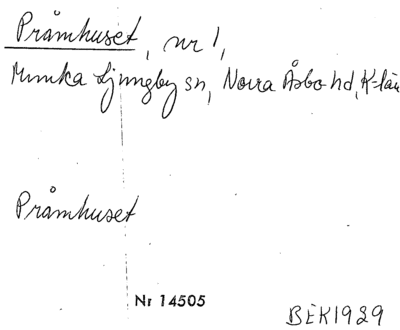 Pråmhuset, nr 1,
Munka Ljungby sn, Norra Åsbo hd, K-län
Pråmhuset
Nr 14505
BEK1929